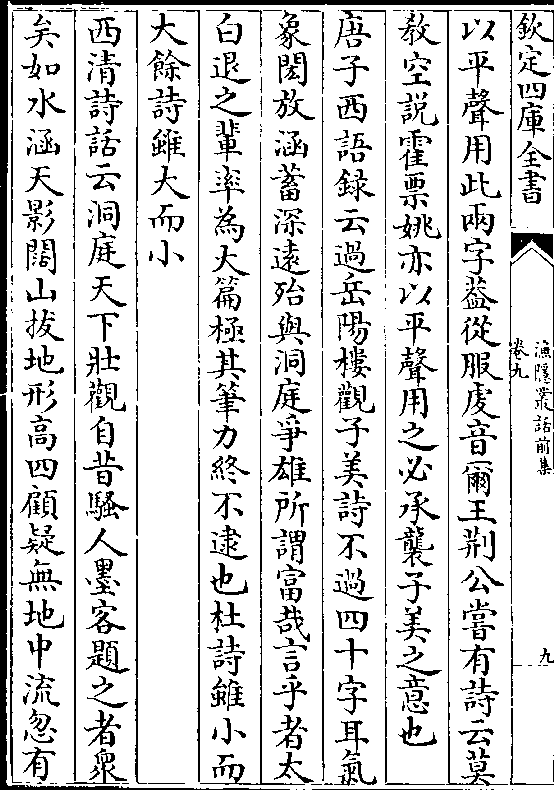 欽定四庫全書
漁隱叢話前集
卷九
九
以平聲用此兩字葢從服虔音爾王荆公嘗有詩云莫
教空説霍票姚亦以平聲用之必承襲子美之意也
唐子西語録云過岳陽樓觀子美詩不過四十字耳氣
象閎放涵蓄深遠殆與洞庭爭雄所謂富哉言乎者太
白退之輩率為大篇極其筆力終不逮也杜詩雖小而
大餘詩雖大而小
西清詩話云洞庭天下壯觀自昔騷人墨客題之者衆
矣如水涵天影闊山拔地形高四顧疑無地中流忽有